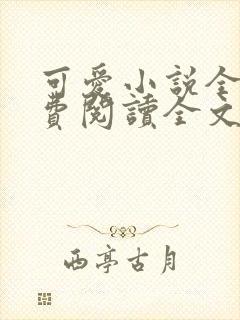 可愛小説全
費閱讀全文
西亭古月